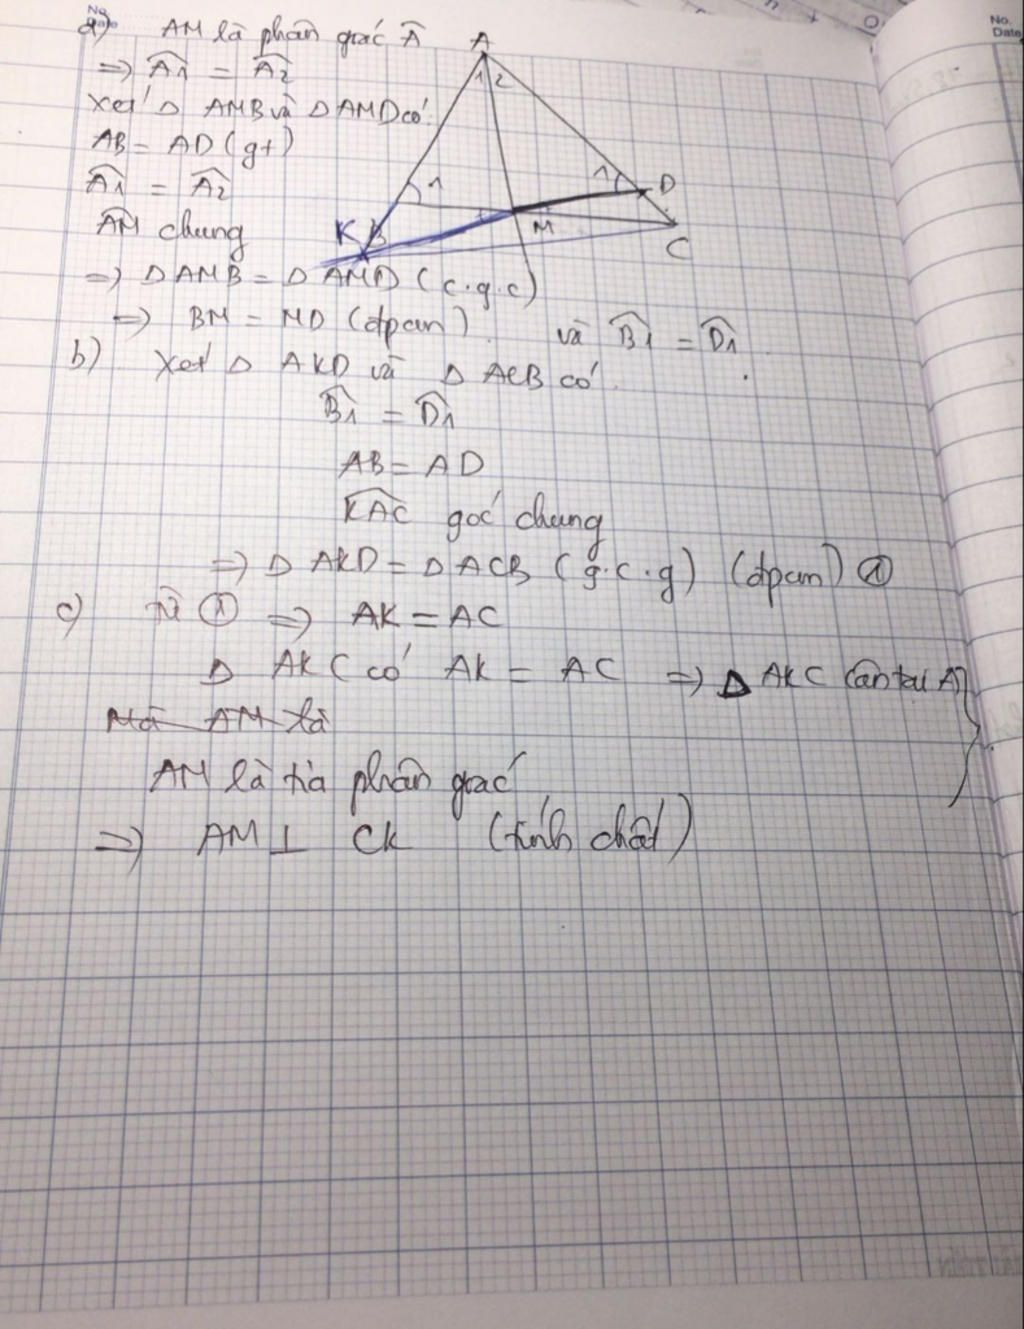 No.
Date
No.
Date
a) AM là phân giác Â
=> Â1 = Â2
A
1 2
Xét Δ AMB và Δ AMD có
AB = AD (gt)
Â1 = Â2
1 1 D
AM chung
K B M C
=> Δ AMB = Δ AMD (c.g.c)
=> BM = MD (đpcm) và B̂1 = D̂1
b) Xét Δ AKD và Δ ACB có
B̂1 = D̂1
AB = AD
K̂AC góc chung
=> Δ AKD = Δ ACB (g.c.g) (đpcm) ①
c) Từ ① => AK = AC
Δ AKC có AK = AC => Δ AKC cân tại A
Mà AM là
AM là tia phân giác
=> AM ⊥ CK (tính chất)